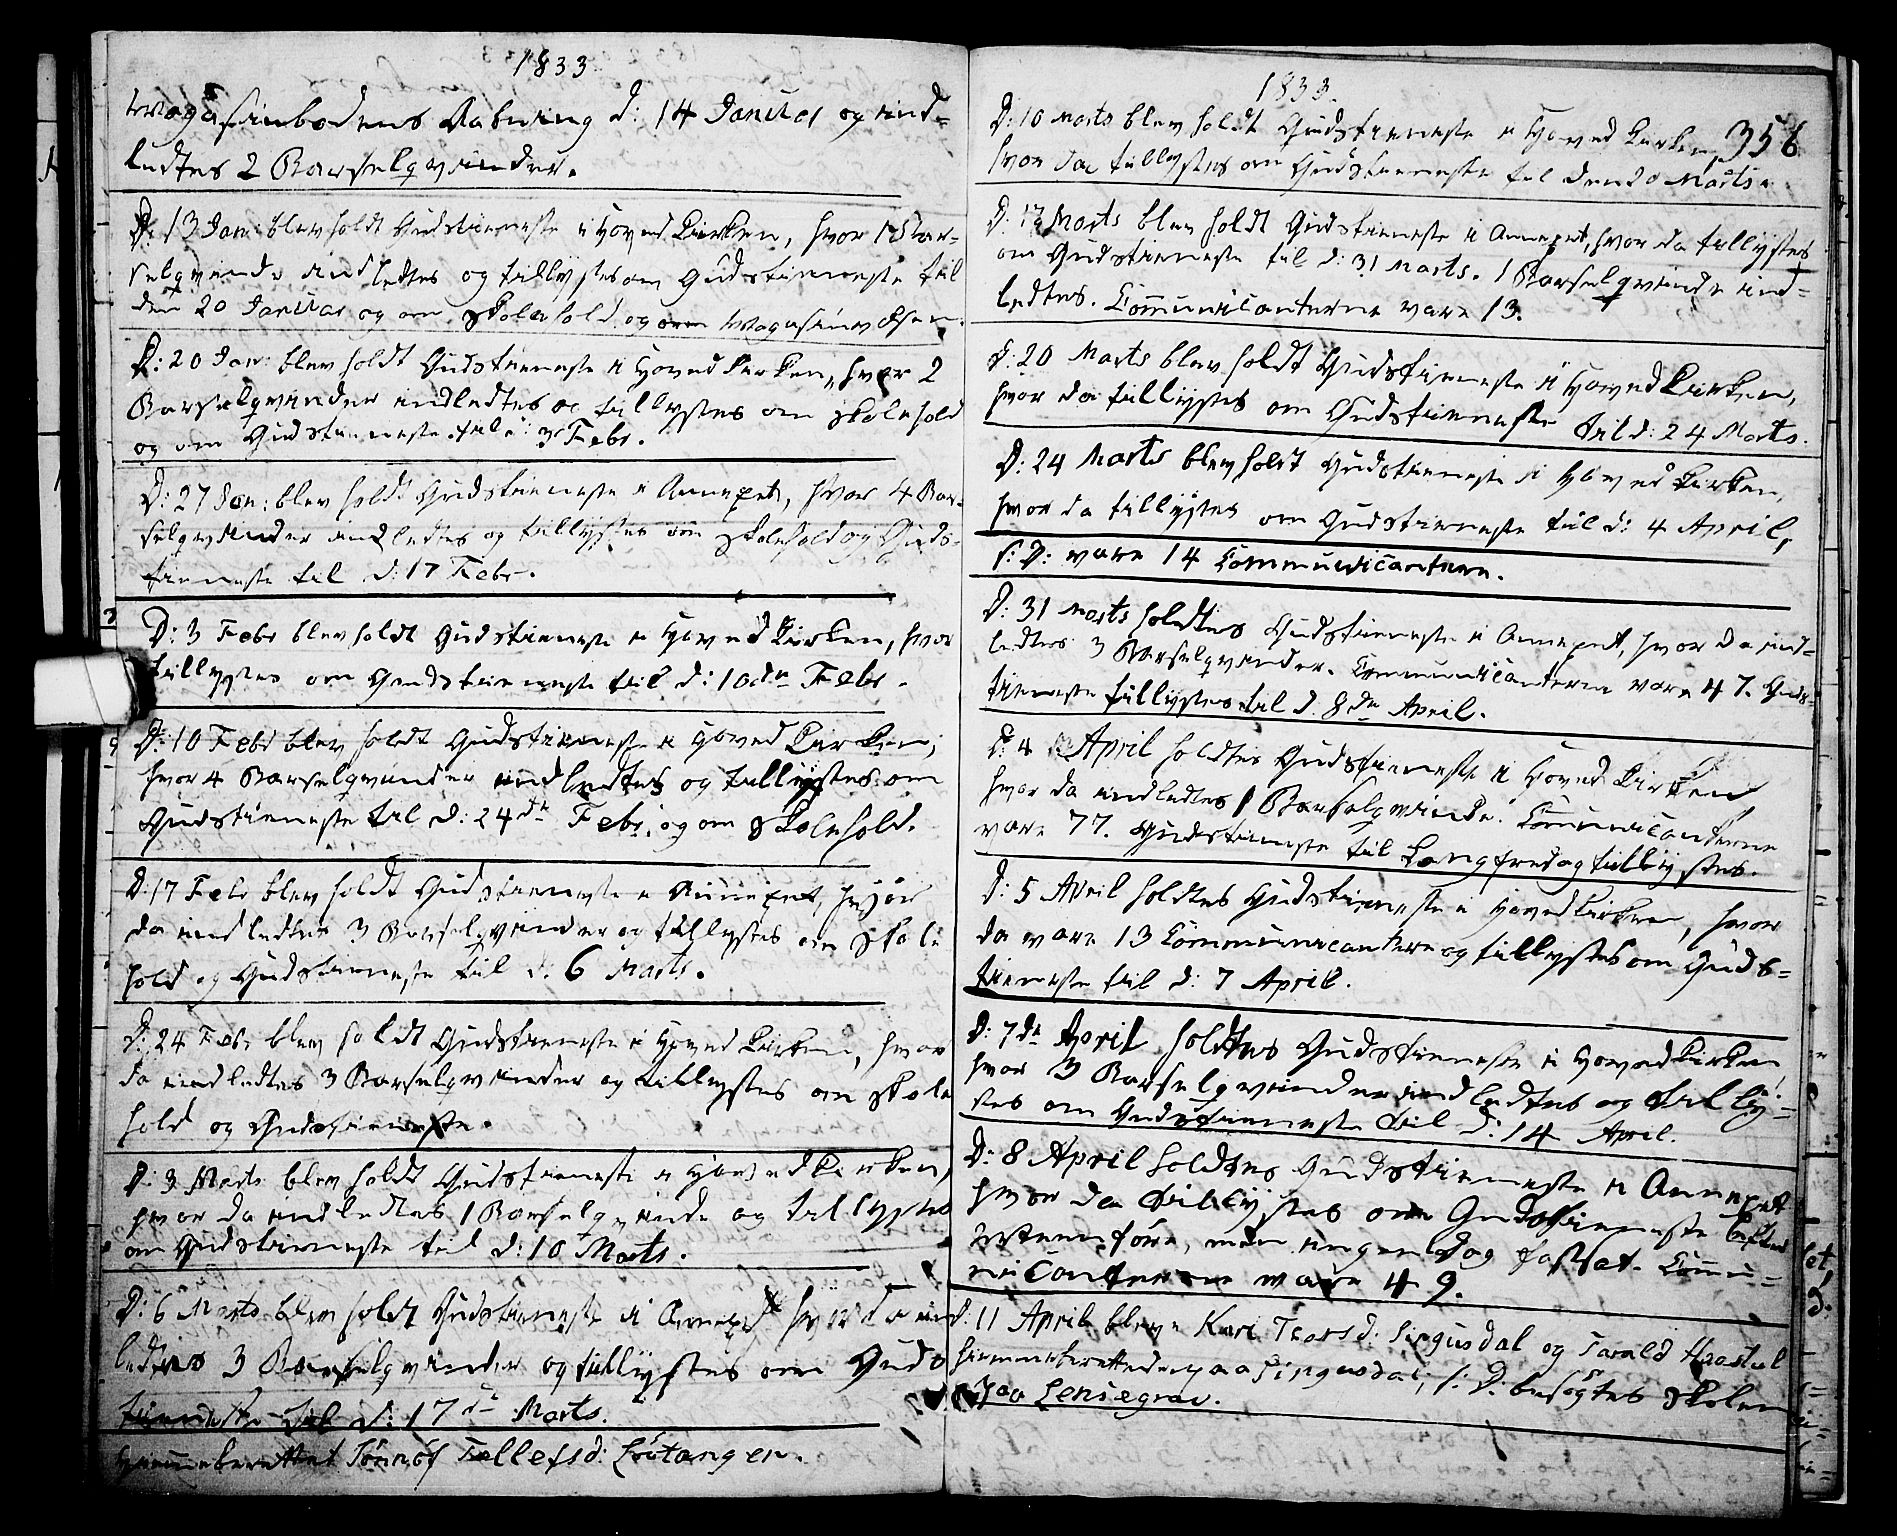 1833
Magasinbodens Aabning d: 14 Januar og ind=
ledtes 2 Barselqvinder.
D: 13 Jan: blev holdt Gudstieneste i Hoved Kirken, hvor 1 Bar=
selqvinde indledtes og tillystes om Gudstieneste til
den 20 Januar og om Skolehold og om
D: 20 Jan: blev holdt Gudstieneste i Hoved Kirken, hvor 2
Barselqvinder indledtes og tillystes om Skolehold
og om Gudstieneste til 3 Febr.
D: 27 Jan: blev holdt Gudstieneste i Annexet, hvor 4 Bar=
selqvinder indledtes og tillystes om Skolehold og Guds=
tieneste til d: 17 Febr.
D: 3 Febr blev holdt Gudstieneste i Hoved Kirken, hvor
tillystes om Gudstieneste til d: 10de Febr.
D: 10 Febr blev holdt Gudstieneste i Hoved Kirken,
hvor 4 Barselqvinder indledtes og tillystes om
Gudstieneste til d: 24de Febr. og om Skolehold.
D: 17 Febr blev holdt Gudstieneste i Annexet, hvor
da indledtes 3 Barselqvinder og tillystes om Skole
hold og Gudstieneste til d: 6 Marts.
D: 24 Febr blev holdt Gudstieneste i Hoved Kirken, hvor
da indledtes 3 Barselqvinder og tillystes om Skole
hold og Gudstieneste.
D: 3 Marts blev holdt Gudstieneste i Hoved Kirken,
hvor da indledtes 1 Barselqvinde og tillystes
om Gudstieneste til d: 10 Marts.
D: 6 Marts blev holdt Gudstieneste i Annexet hvor da ind
ledtes 3 Barselqvinder og tillystes om Guds
tieneste til d: 17de Marts.
Hiemmeberettet Tellefsd:
1833.
356
D: 10 Marts blev holdt Gudstieneste i Hoved Kirken,
hvor da tillystes om Gudstieneste til den 20 Marts.
D: 17 Marts blev holdt Gudstieneste i Annexet, hvor da tillystes
om Gudstieneste til d: 31 Marts. 1 Barselqvinde ind=
ledtes. Communicanterne vare 13.
D: 20 Marts blev holdt Gudstieneste i Hoved Kirken,
hvor da tillystes om Gudstieneste til d: 24 Marts.
D: 24 Marts blev holdt Gudstieneste i Hoved Kirken,
hvor da tillystes om Gudstieneste til d: 4 April,
s: D: vare 14 Communicantere.
D: 31 Marts holdtes Gudstieneste i Annexet, hvor da ind=
ledtes 3 Barselqvinder. Communicanterne vare 47. Guds=
tieneste tillystes til d. 8de April.
D: 4 April holdtes Gudstieneste i Hoved Kirken
hvor da indledtes 1 Barselqvinde. Communicanterne
vare 77. Gudstieneste til Langfredag tillystes.
D: 5 April holdtes Gudstieneste i Hovedkirken, hvor
da vare 13 Communicantere og tillystes om Guds=
tieneste til d: 7 April.
D: 7de April holdtes Gudstieneste i Hovedkirken
hvor 3 Barselqvinder indledtes og tilly=
stes om Gudstieneste til D: 14 April.
D: 8 April holdtes Gudstieneste i Annexet
hvor da tillystes om Gudstieneste
men ingen Dag fastsat. Commu=
nicanterne vare 49.
D: 11 April bleve Kari Tarald
hiemmeberettede paa s: D: besøgtes Skolen
paa